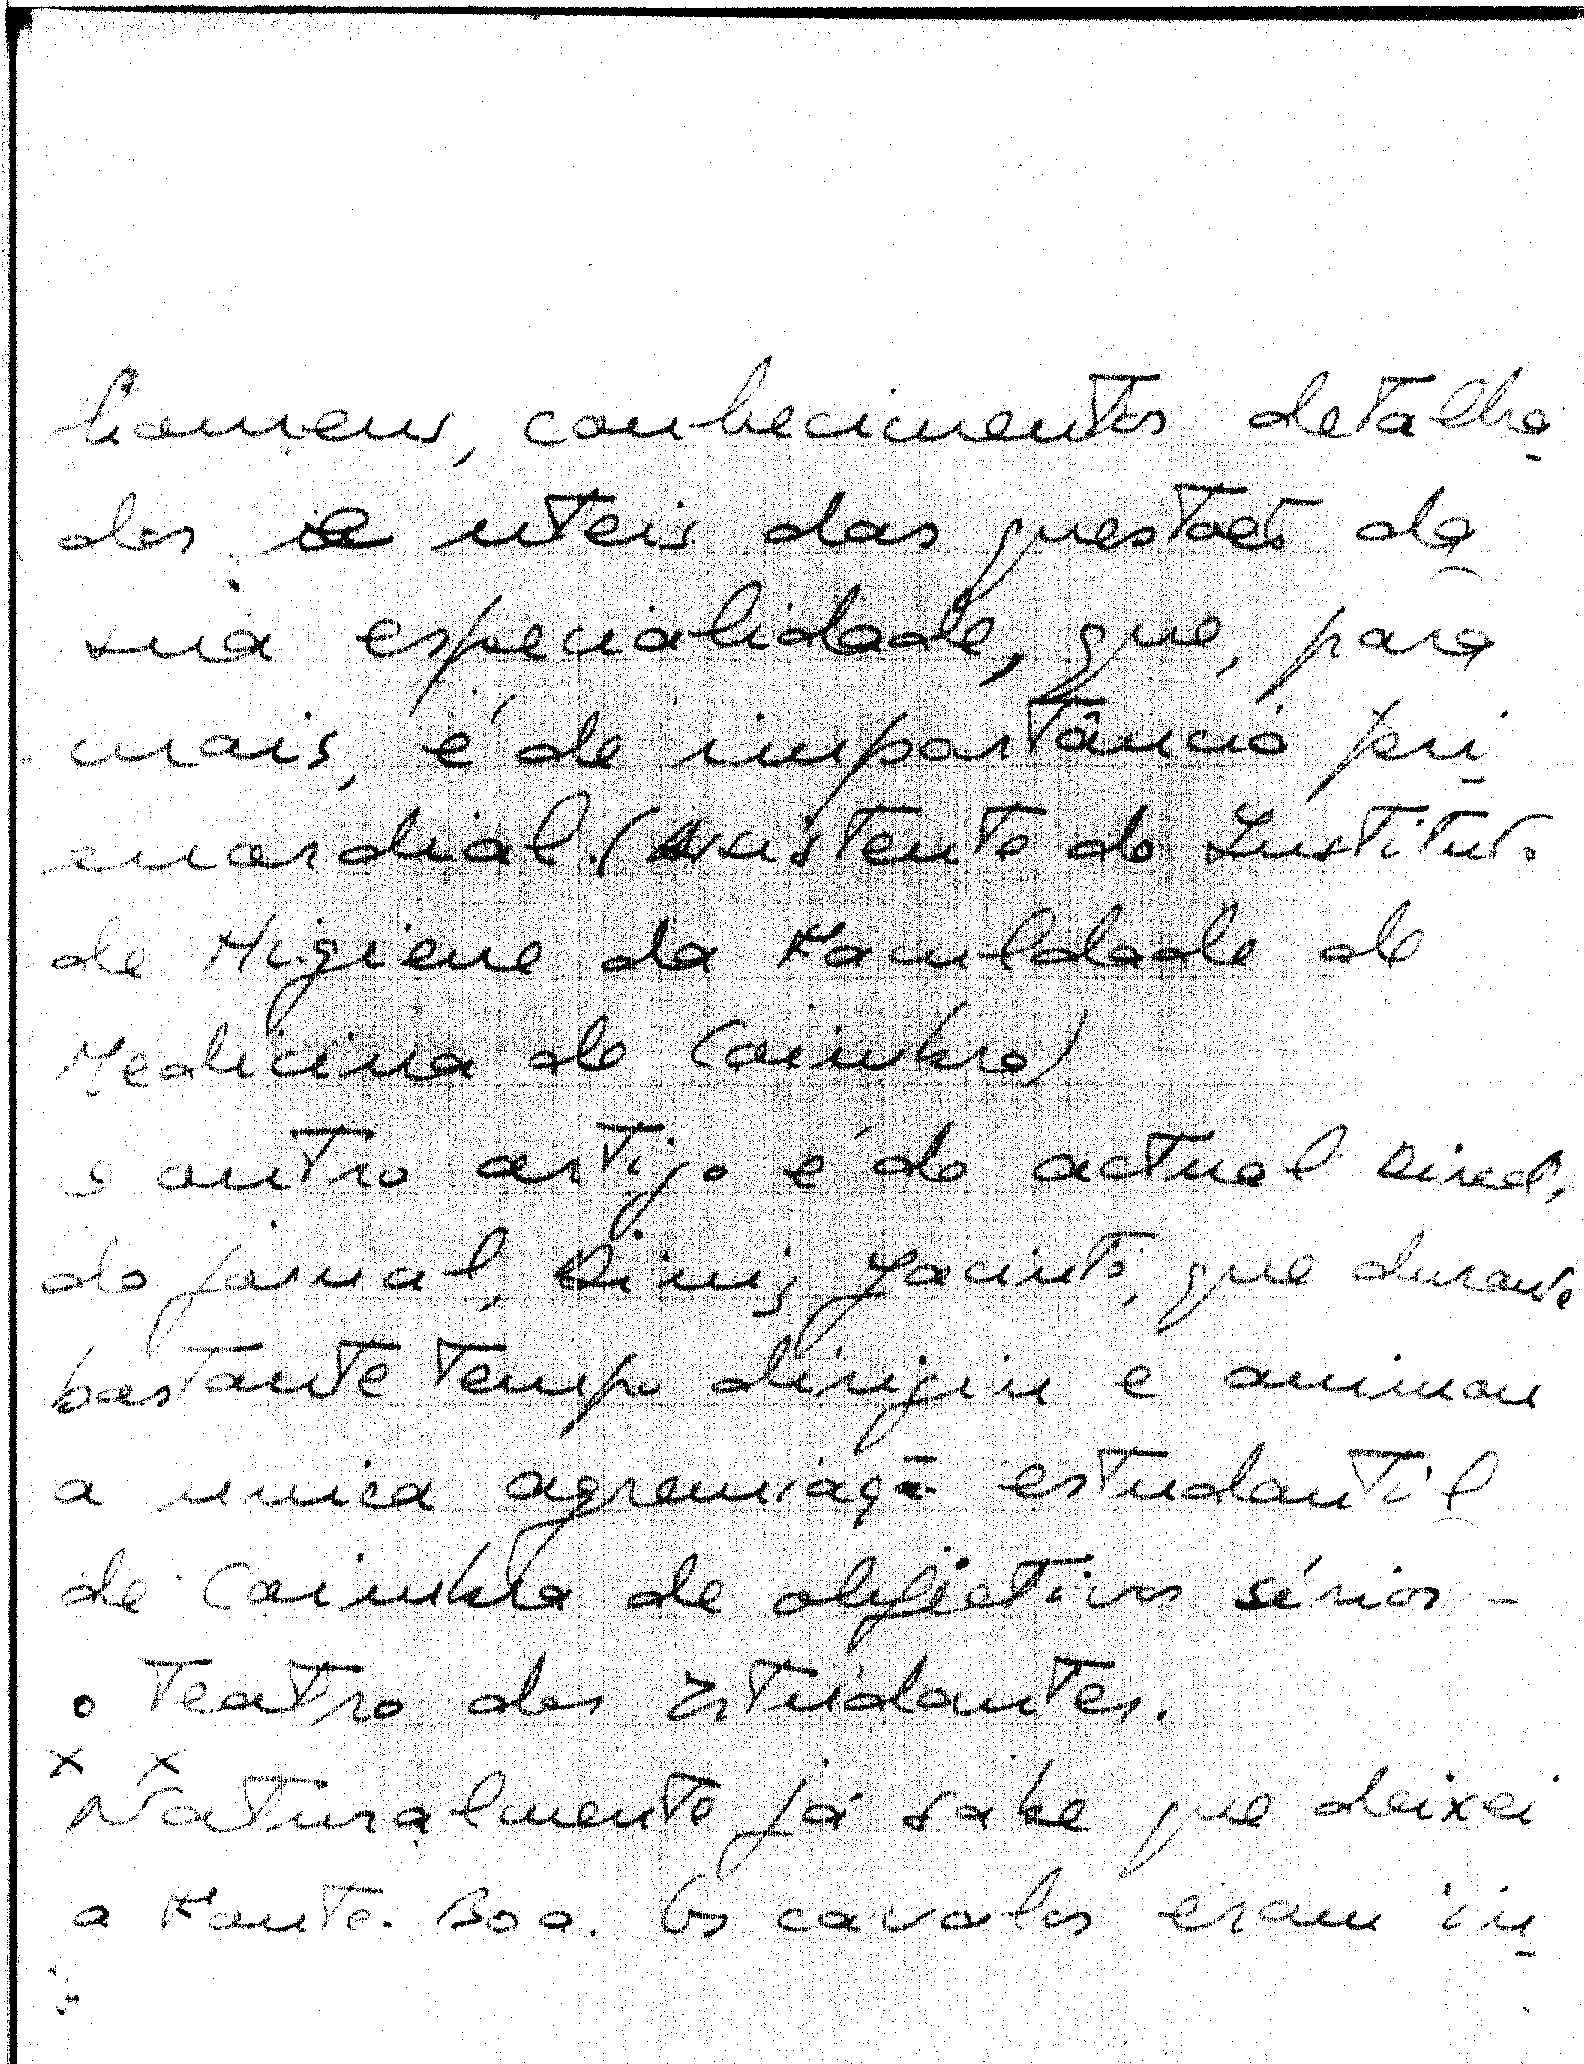 homens, conhecimentos detalha
dos e uteis das questões da
sua especialidade, que, para
mais, é de importância pri
mordial. (Assistente do Instituto
de Higiene da Faculdade de
Medicina de Coimbra)
o outro artigo é do actual Direct.
do jornal, Dinis Jacinto, que durante
bastante tempo dirigiu e animou
a unica agremiação estudantil
de Coimbra de objectivos sérios -
o Teatro dos Estudantes.
x x
Naturalmente já sabe que deixei
a Fonte-Boa. Os cavalos eram in